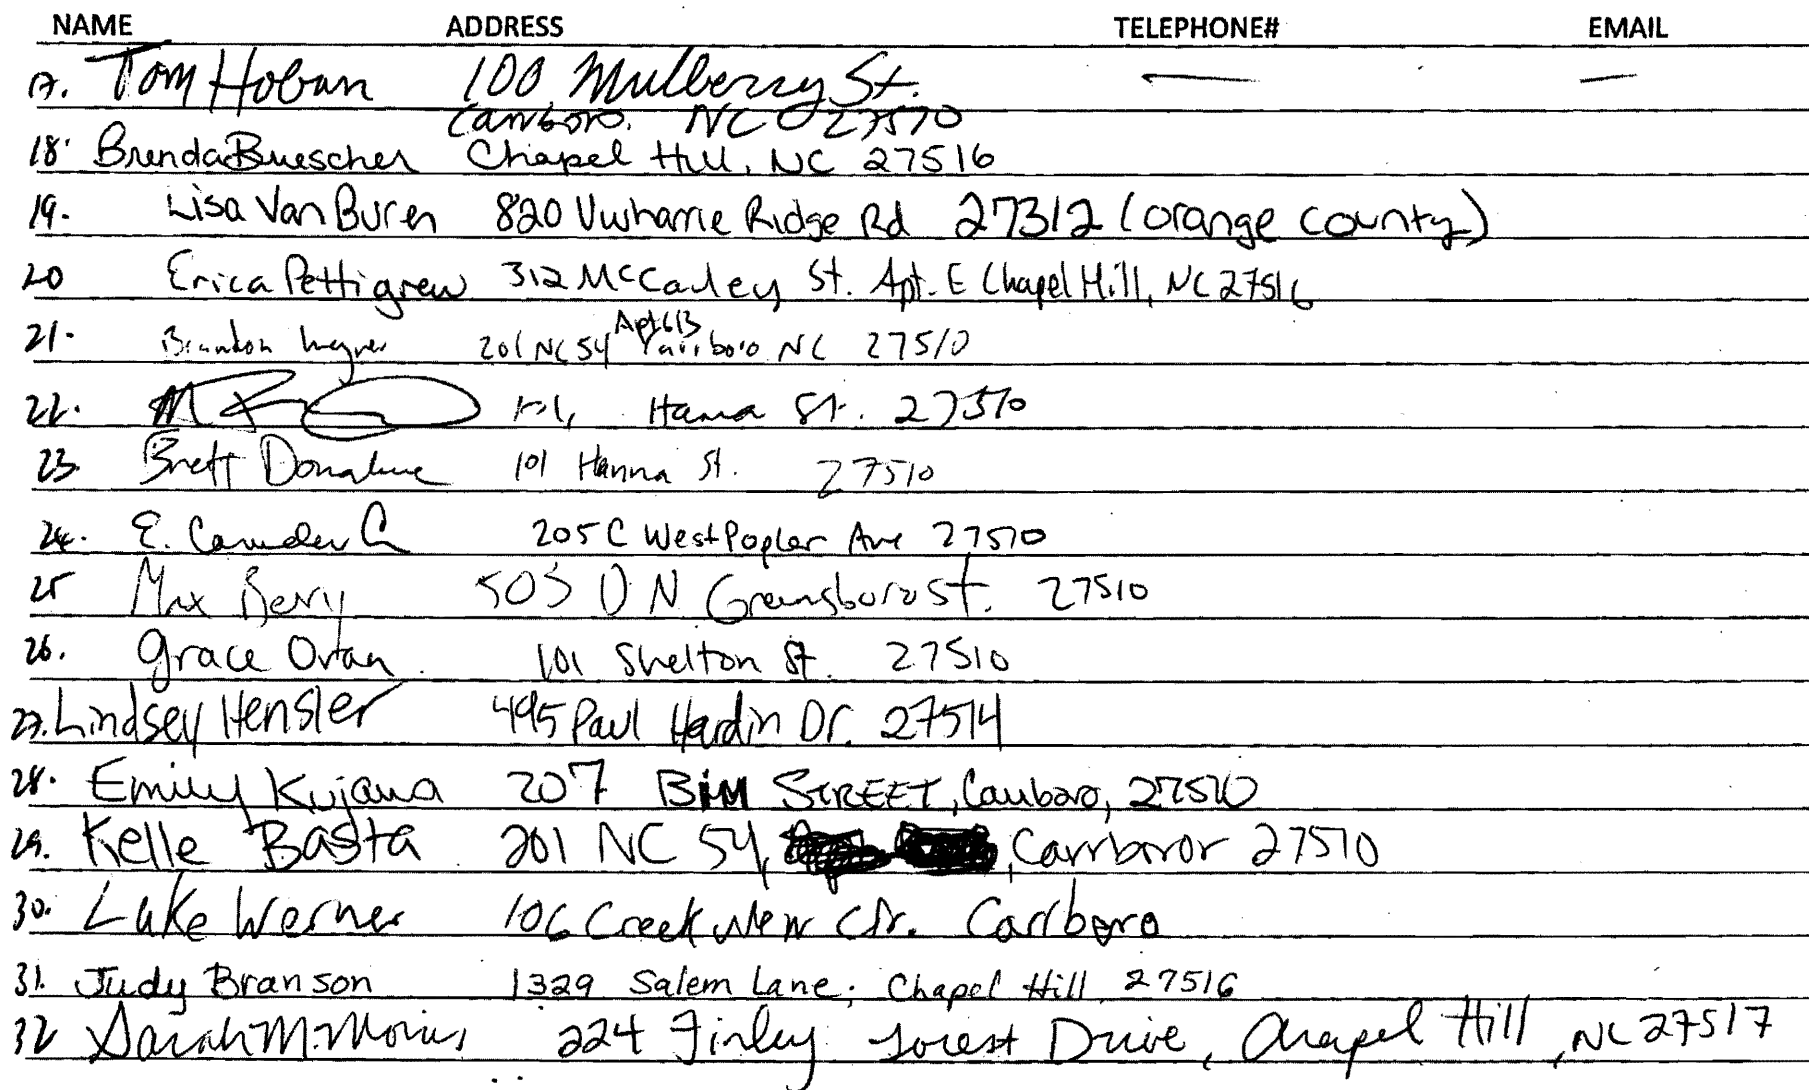 NAME ADDRESS TELEPHONE# EMAIL
17. Tom Hoban 100 Mulberry St. — —
Carrboro. NC 27510
18. Brenda Buescher Chapel Hill, NC 27516
19. Lisa Van Buren 820 Uwharrie Ridge Rd 27312 (orange county)
20 Erica Pettigrew 312 McCauley St. Apt. E Chapel Hill, NC 27516
21. Brandon 201 NC 54 Apt 613 Carrboro NC 27510
22. Hanna St. 27510
23. Brett Donahue 101 Hanna St. 27510
24. E. Camden 205 C West Poplar Ave 27510
25 Max Berry 505 D N Greensboro St. 27510
26. Grace 101 Shelton St. 27510
27. Lindsey Hensler 495 Paul Hardin Dr. 27514
28. Emily Kujawa 207 BIM STREET, Carrboro, 27510
29. Kelle Basta 201 NC 54, , Carrboror 27510
30. Luke Werner 106 Creekview Cir. Carrboro
31. Judy Branson 1329 Salem Lane, Chapel Hill 27516
32 Sarah M. Morris 224 Finley Forest Drive, Chapel Hill, NC 27517